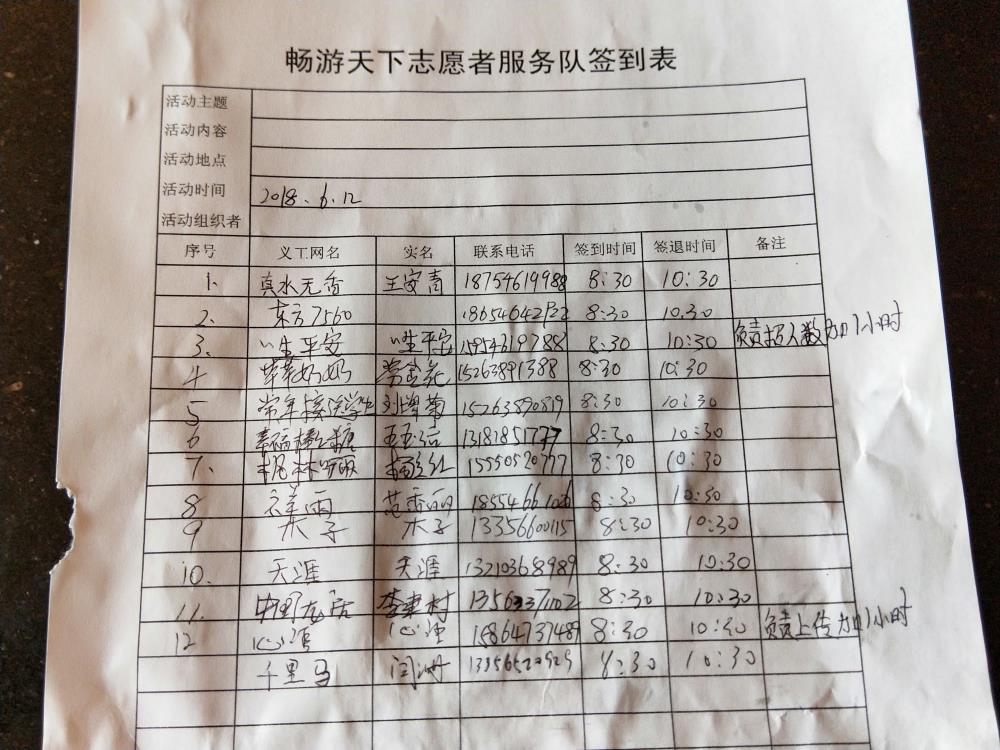 畅游天下志愿者服务队签到表
活动主题
活动内容
活动地点
活动时间 2018.6.12
活动组织者
序号 义工网名 实名 联系电话 签到时间 签退时间 备注
1. 真水无香 王安青 18754619988 8:30 10:30
2. 东方7560 8:30 10.30
3. 一生平安 一生平安 15954619788 8:30 10:30 负责招人数加1小时
4 苹果妈妈 15263891388 8:30 10:30
5 常年接送学生 刘增菊 15263890819 8:30 10:30
6 糖 13181851777 8:30 10:30
7. 15550520777 8:30 10:30
8 雨 范秀丽 8:30 10:30
9 木子 木子 13356600115 8:30 10:30
10. 天涯 天涯 13210368989 8:30 10:30
11. 李建村 8:30 10:30
12 15864737489 8:30 10:30 负责上传加1小时
千里马 闫洲 8:30 10:30